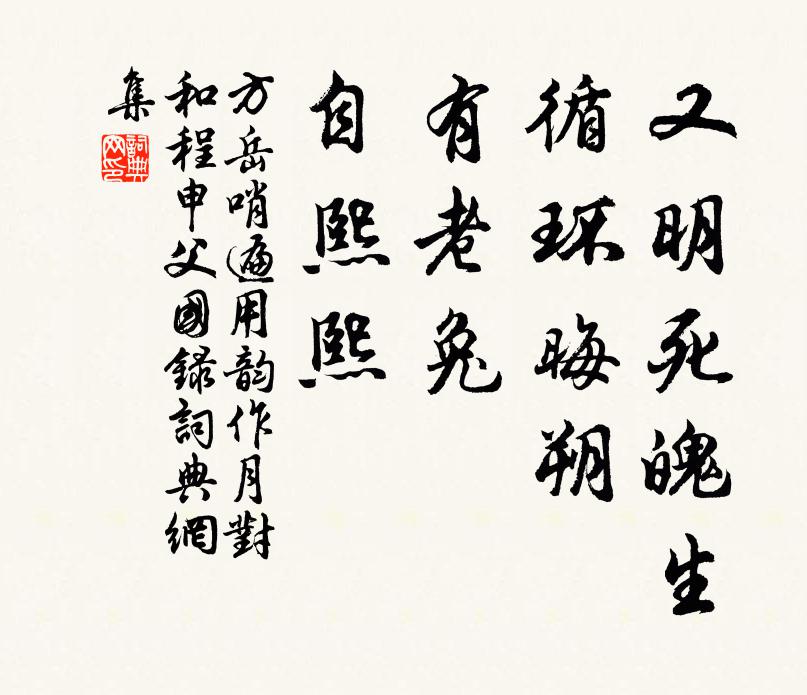 又明死魄生
循环晦朔
有老兔
自熙熙
方岳哨遍用韵作月對
和程申父國録詞典網
集
詞典網印